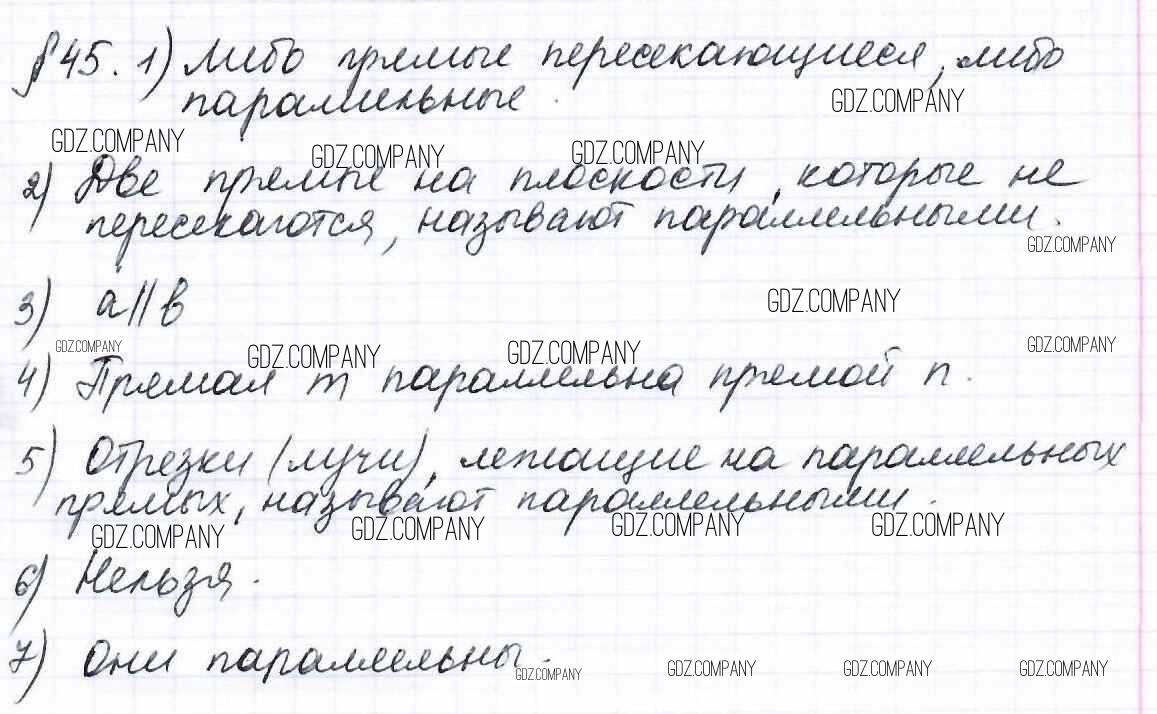 §45. 1) Либо прямые пересекающиеся, либо
параллельные.
GDZ.COMPANY
GDZ.COMPANY GDZ.COMPANY GDZ.COMPANY
2) Две прямые на плоскости, которые не
пересекаются, называют параллельными.
GDZ.COMPANY
3) a||b
GDZ.COMPANY
GDZ.COMPANY GDZ.COMPANY GDZ.COMPANY GDZ.COMPANY
4) Прямая m параллельна прямой n.
5) Отрезки (лучи), лежащие на параллельных
прямых, называют параллельными.
GDZ.COMPANY GDZ.COMPANY GDZ.COMPANY GDZ.COMPANY
6) Нельзя.
7) Они параллельны.
GDZ.COMPANY GDZ.COMPANY GDZ.COMPANY GDZ.COMPANY